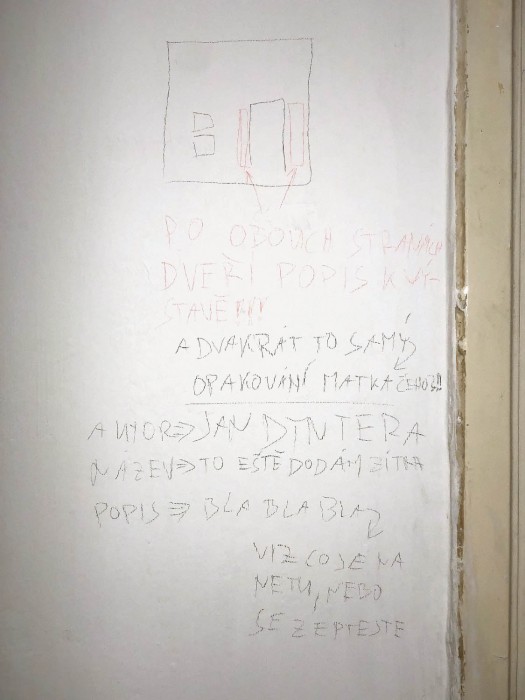 PO OBOUCH STRANÁCH
DVEŘÍ POPIS K VÝ-
STAVĚ!!!
A DVAKRÁT TO SAMÝ
OPAKOVÁNÍ MATKA ČEHOS!!
AUTOR⇒JAN DINTERA
NÁZEV⇒TO EŠTĚ DODÁM ZÍTRA
POPIS⇒ BLA BLA BLA
VIZ CO JE NA
NETU, NEBO
SE ZEPTEJTE